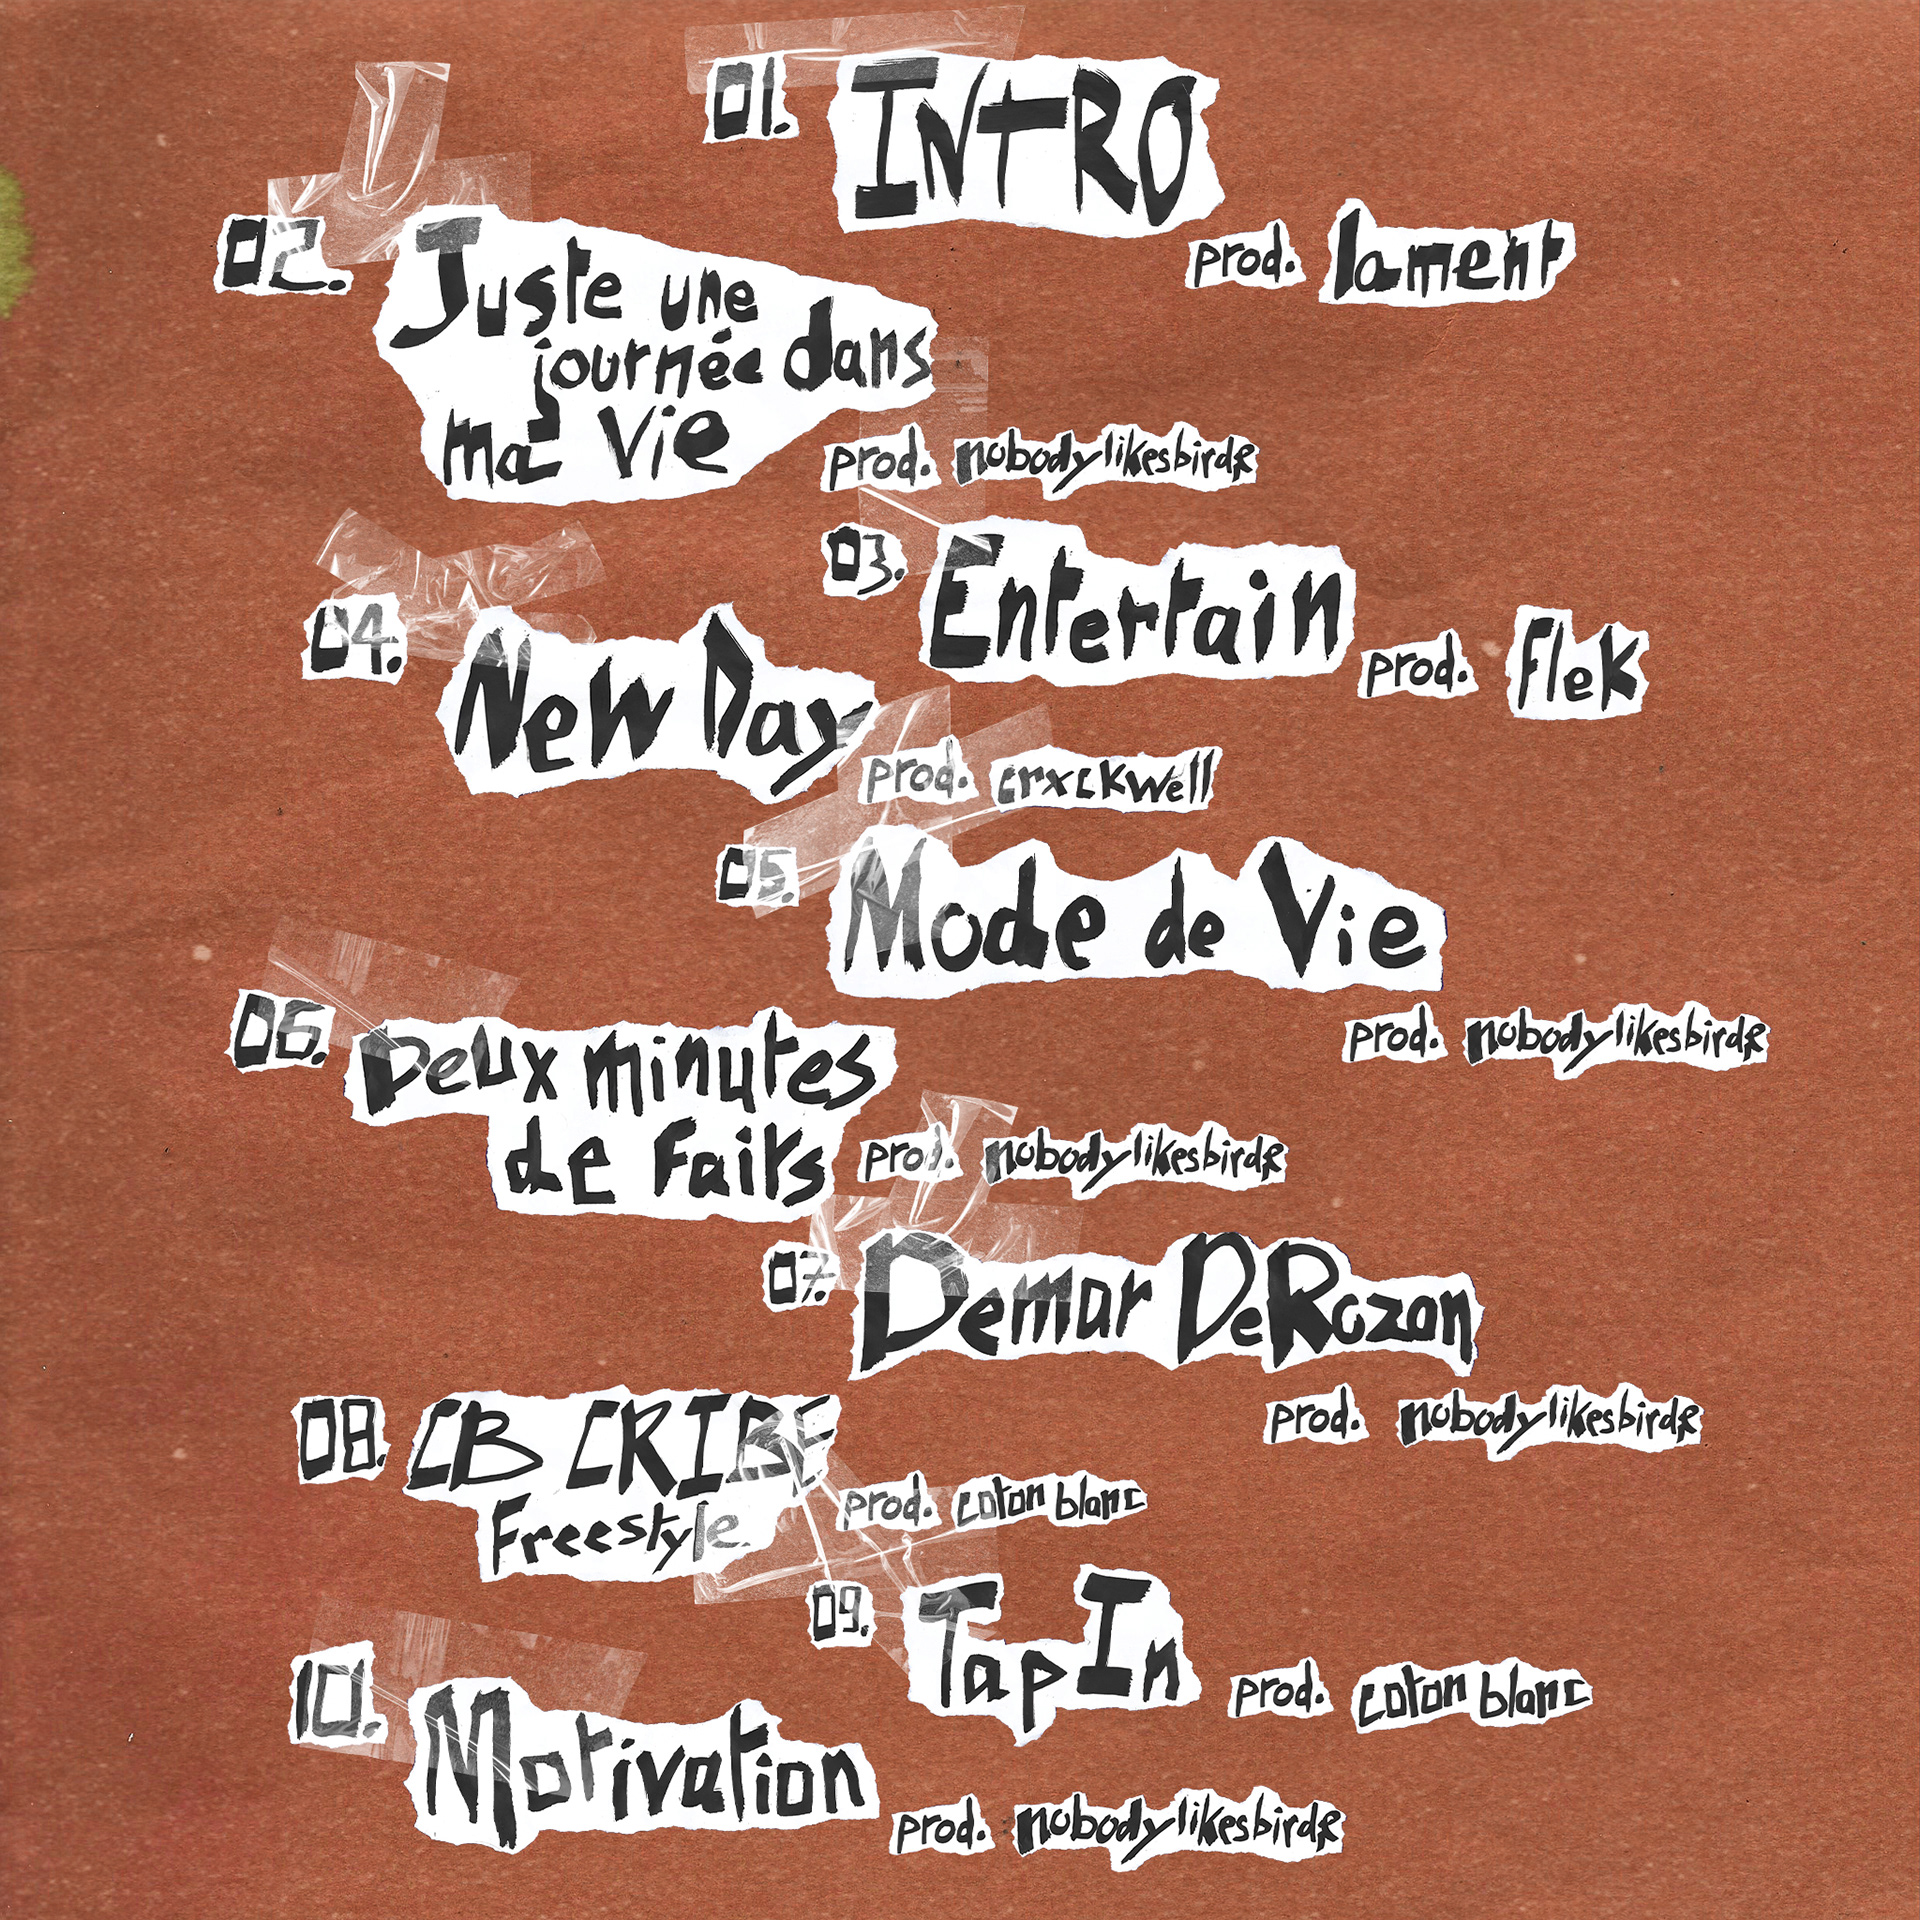 01. INTRO
prod. lament
02. Juste une
journée dans
ma vie
prod. nobodylikesbirds
03. Entertain
prod. flek
04. New Day
prod. crxckwell
05. Mode de Vie
prod. nobodylikesbirds
06. Deux minutes
de faits
prod. nobodylikesbirds
07. Demar DeRozan
prod. nobodylikesbirds
08. CB CRIBE
Freestyle
prod. coton blanc
09. Tap In
prod. coton blanc
10. Motivation
prod. nobodylikesbirds